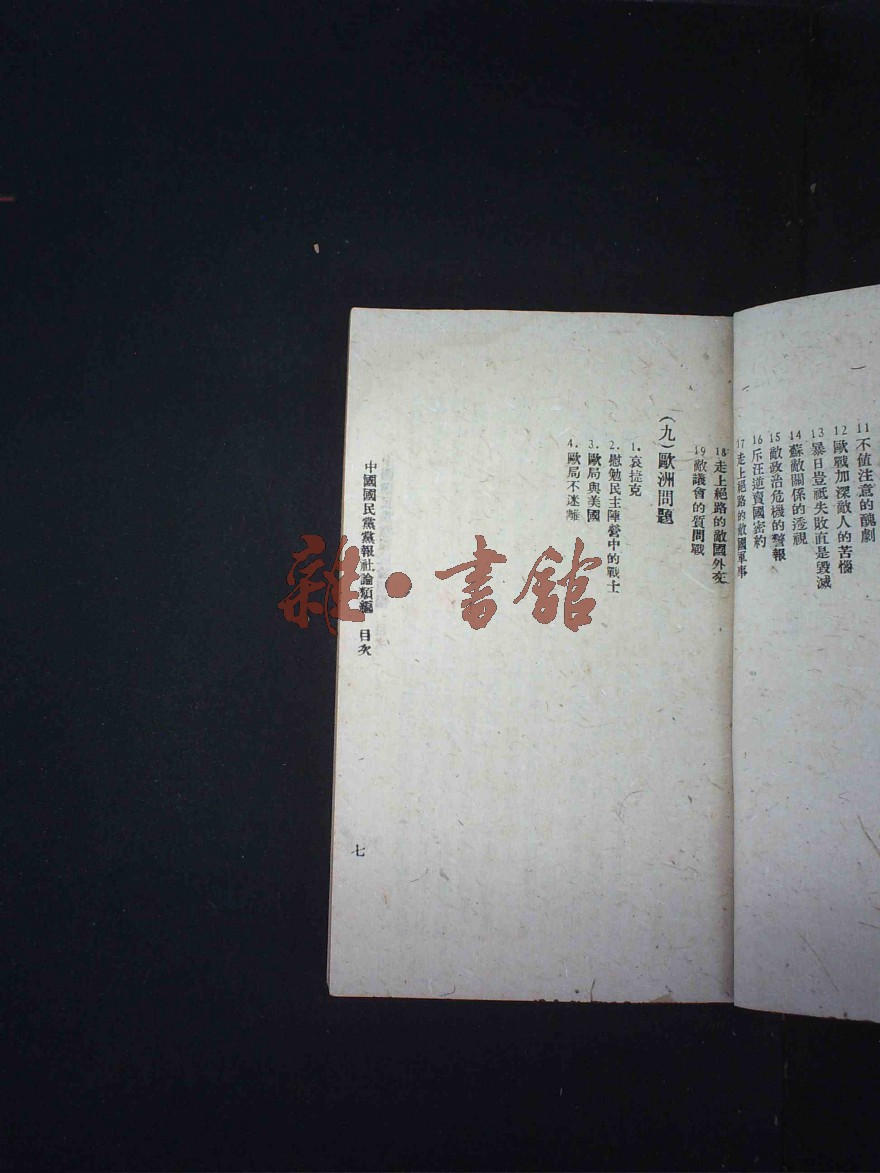 11 不值注意的醜劇
12 歐戰加深敵人的苦惱
13 暴日豈祇失敗直是毀滅
14 蘇敵關係的透視
15 敵政治危機的警報
16 斥汪逆賣國密約
17 走上絕路的敵國軍事
18 走上絕路的敵國外交
19 敵議會的質問戰
(九)歐洲問題
1. 哀捷克
2. 慰勉民主陣營中的戰士
3. 歐局與美國
4. 歐局不迷離
中國國民黨黨報社論類編 目次
七
雜·書館